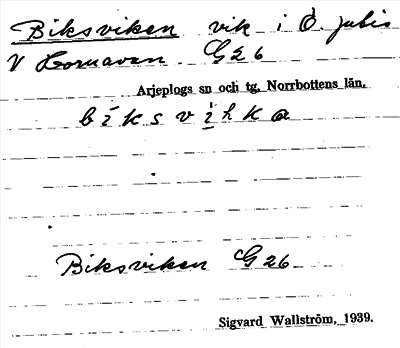 Biksviken vik i Ö. Jutis
V Hornavan G26
Arjeplogs sn och tg. Norrbottens län.
biksvikka
Biksviken G26
Sigvard Wallström, 1939.